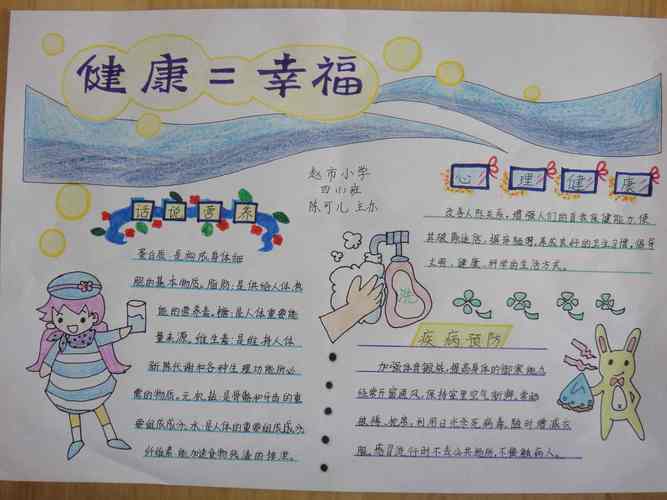 健康=幸福
赵市小学
四(1)班
陈可儿 主办
心理健康
改善人际关系,增强人们的自我保健能力,使
其破除陋活,摄采烟酒,养成良好的卫生习惯,倡导
文明、健康、科学的生活方式。
话说营养
蛋白质:是构成身体细
胞的基本物质。脂肪:是供给人体热
能的营养素。糖:是人体重要能
量来源。维生素:是维持人体
新陈代谢和各种生理功能所必
需的物质。无机盐:是骨骼和牙齿的重
要组成成分。水:是人体的重要组成成分。
纤维素:能加速食物残渣的排泄。
洗
疾病预防
加强体育锻炼,提高身体的御寒能力
经常开窗通风,保持室里空气新潮,常动
晒褥、地点,利用日光杀死病毒。随时增减衣
服。感冒流行时不去公共场所,不接触病人。